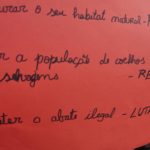 urar o seu habitat natural -
r a população de coelhos
selvagens - RE
ter o abate ilegal - LUTA